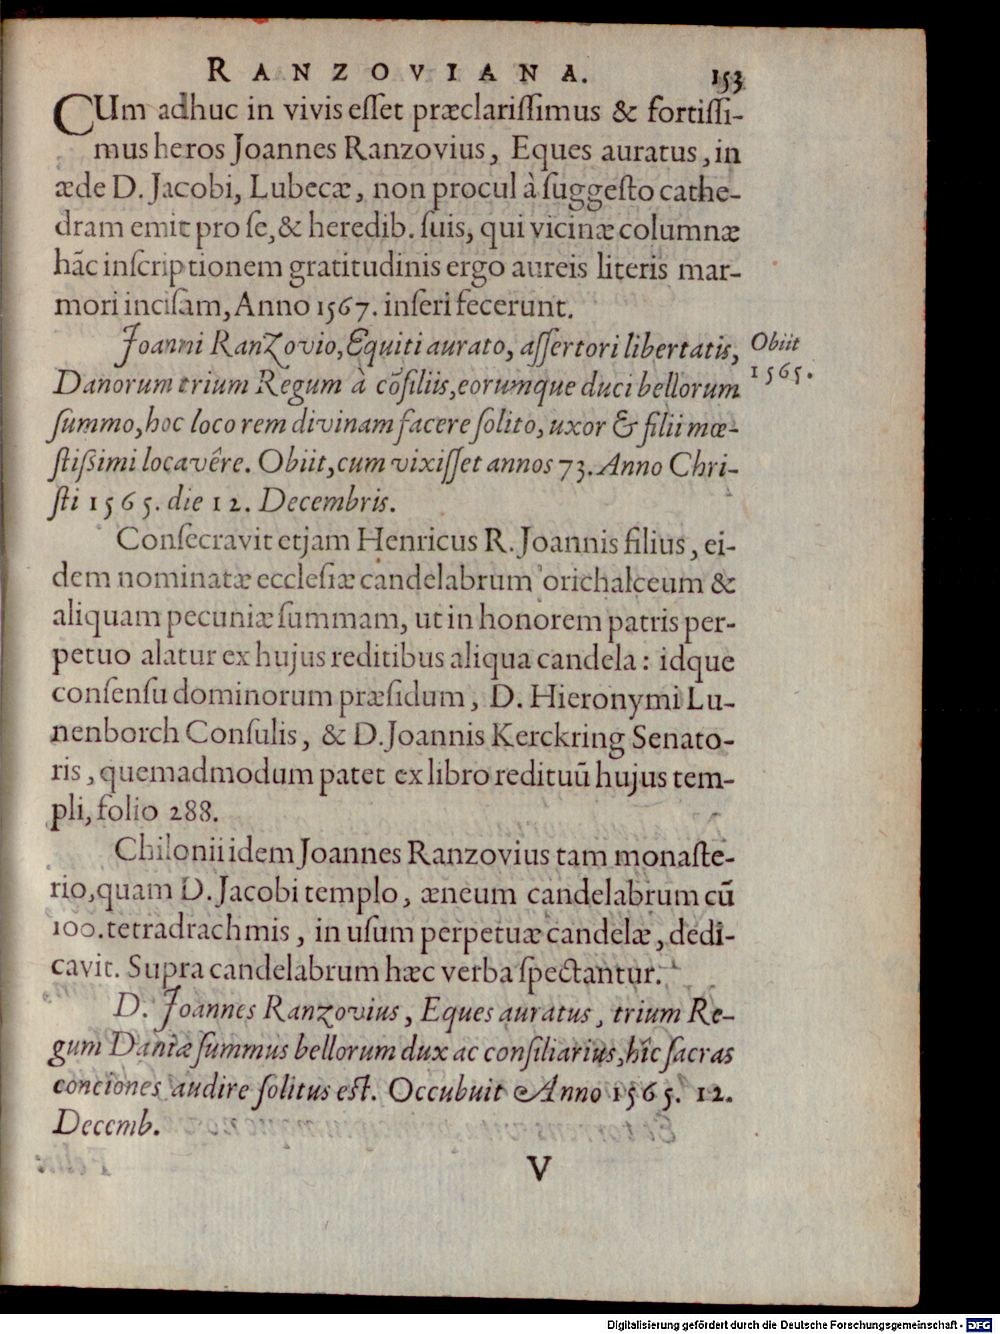 RANZOVIANA. 153
CUm adhuc in vivis eſſet præclariſſimus & fortiſſi-
mus heros Joannes Ranzovius, Eques auratus, in
æde D. Jacobi, Lubecæ, non procul à ſuggeſto cathe-
dram emit pro ſe, & heredib. ſuis, qui vicinæ columnæ
hãc inſcriptionem gratitudinis ergo aureis literis mar-
mori inciſam, Anno 1567. inſeri fecerunt.
Joanni Ranzovio, Equiti aurato, aſſertori libertatis,
Obiit
1565.
Danorum trium Regum à cõſiliis, eorumque duci bellorum
ſummo, hoc loco rem divinam facere ſolito, uxor & filii mœ-
ſtiſsimi locavêre. Obiit, cum vixiſſet annos 73. Anno Chri-
ſti 1565. die 12. Decembris.
Conſecravit etjam Henricus R. Joannis filius, ei-
dem nominatæ eccleſiæ candelabrum orichalceum &
aliquam pecuniæ ſummam, ut in honorem patris per-
petuo alatur ex hujus reditibus aliqua candela: idque
conſenſu dominorum præſidum, D. Hieronymi Lu-
nenborch Conſulis, & D. Joannis Kerckring Senato-
ris, quemadmodum patet ex libro redituũ hujus tem-
pli, folio 288.
Chilonii idem Joannes Ranzovius tam monaſte-
rio, quam D. Jacobi templo, æneum candelabrum cũ
100. tetradrachmis, in uſum perpetuæ candelæ, dedi-
cavit. Supra candelabrum hæc verba ſpectantur.
D. Joannes Ranzovius, Eques auratus, trium Re-
gum Daniæ ſummus bellorum dux ac conſiliarius, hîc ſacras
conciones audire ſolitus eſt. Occubuit Anno 1565. 12.
Decemb.
V
Digitalisierung gefördert durch die Deutsche Forschungsgemeinschaft - DFG